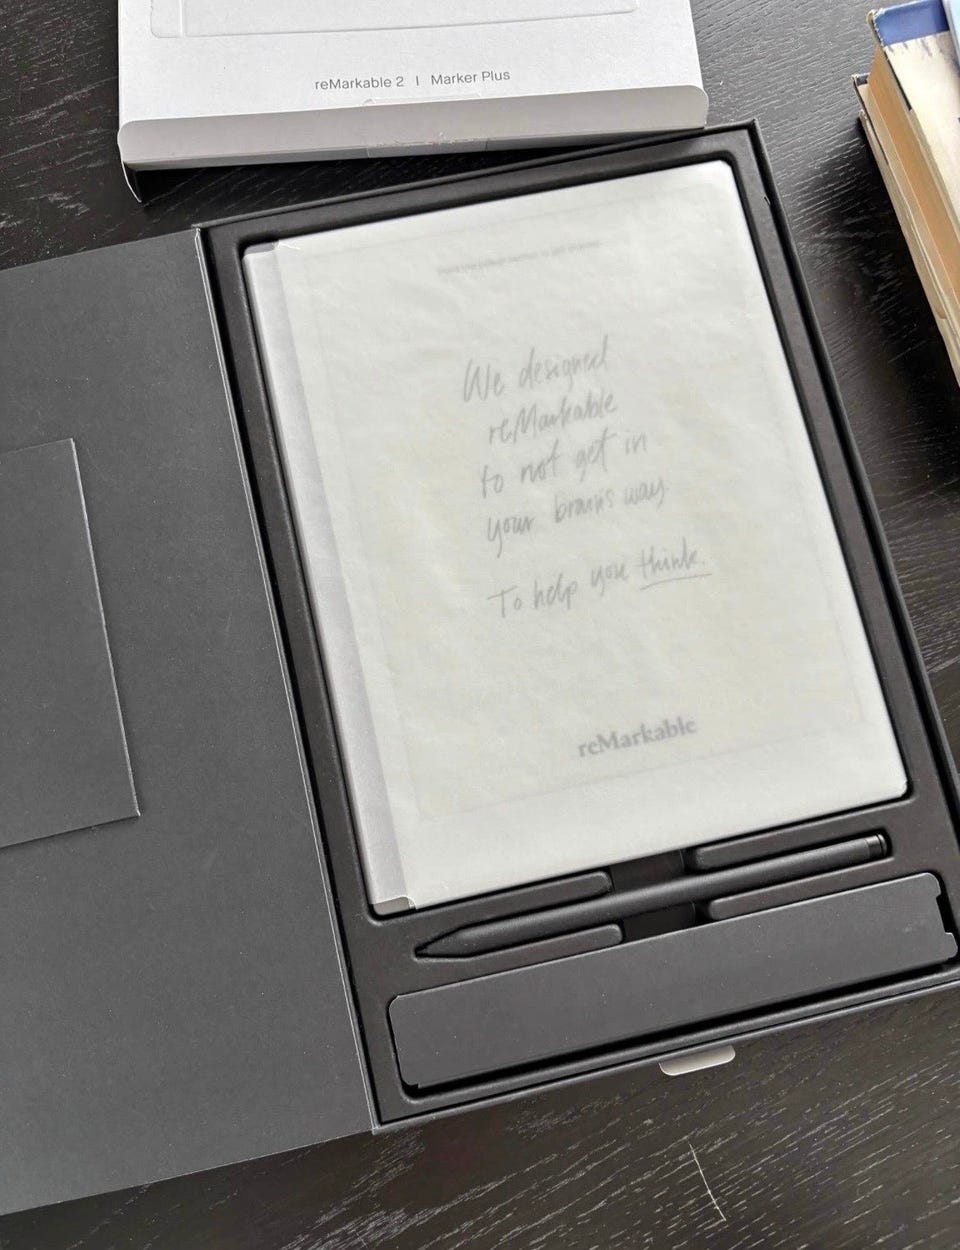 reMarkable 2 | Marker Plus
We designed
reMarkable
to not get in
your brain's way
To help you think.
reMarkable